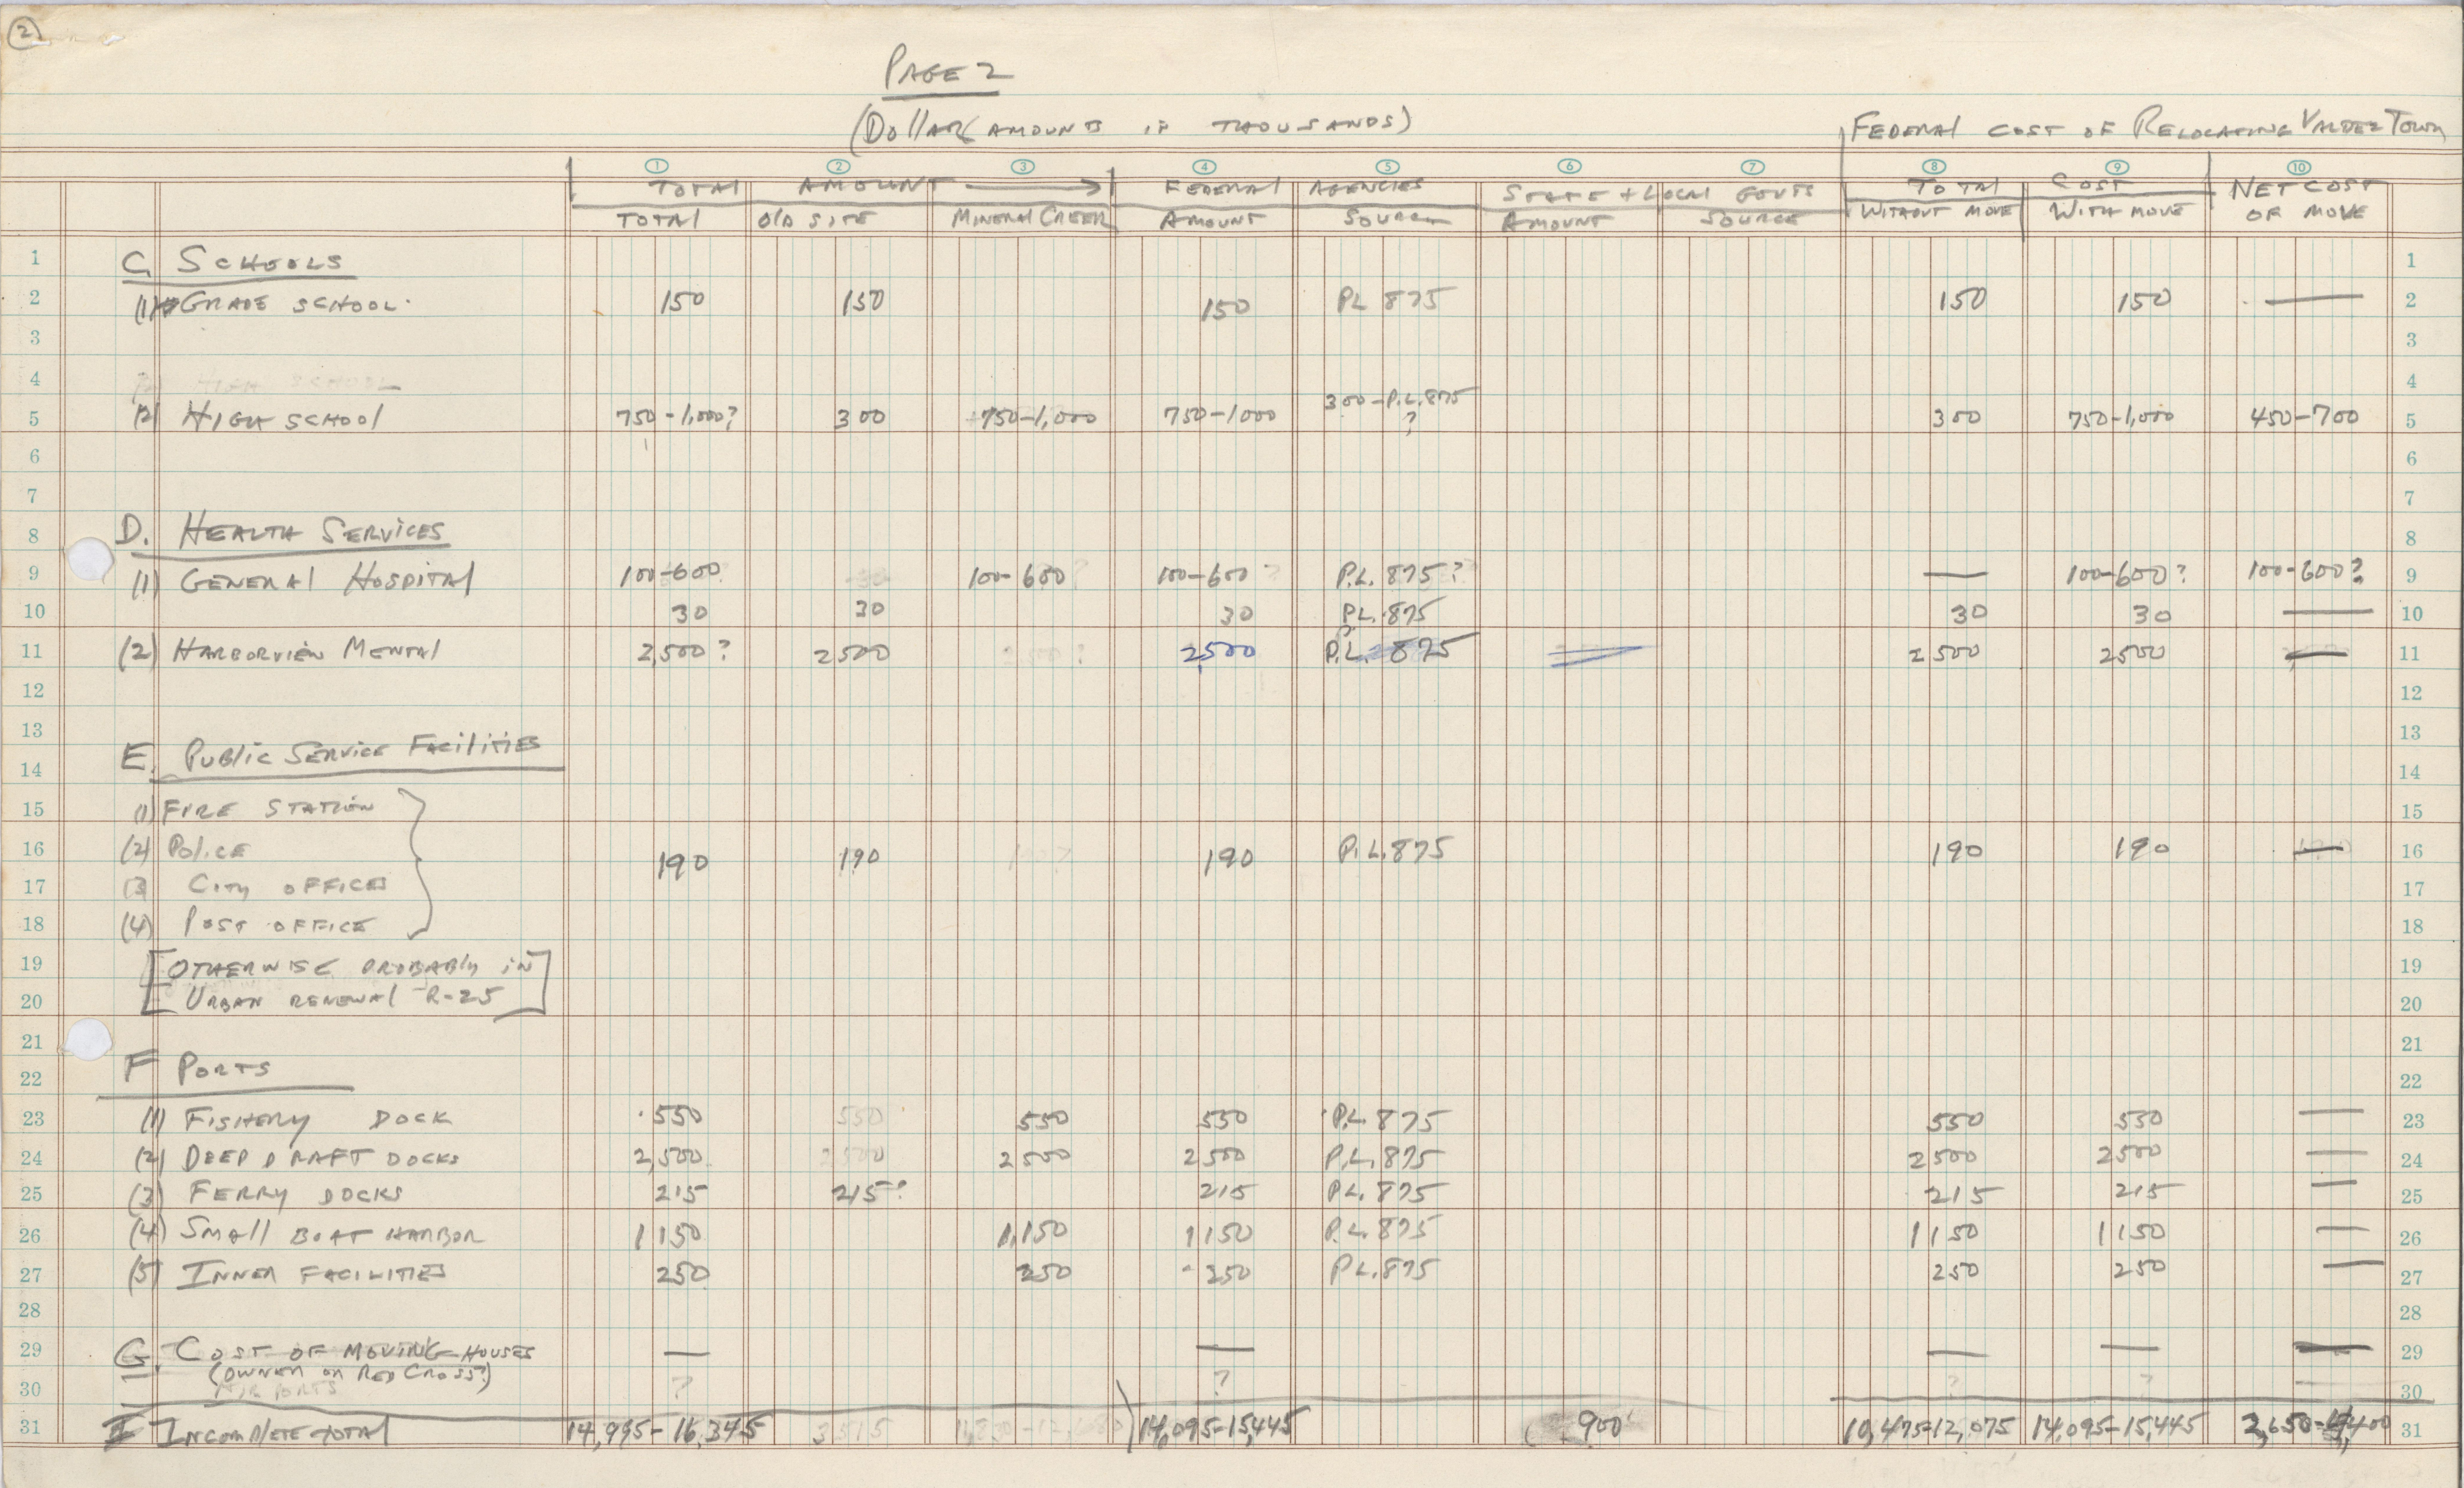 2
PAGE 2
(Dollar amounts in thousands)
FEDERAL COST OF RELOCATING VALDEZ TOWN
1 2 3 4 5 6 7 8 9 10
TOTAL AMOUNT FEDERAL AGENCIES STATE + LOCAL GOVTS TOTAL COST NET COST
TOTAL OLD SITE MINERAL CREEK AMOUNT SOURCE AMOUNT SOURCE WITHOUT MOVE WITH MOVE OF MOVE
1 C. SCHOOLS 1
2 (1) GRADE SCHOOL 150 150 150 PL 875 150 150 — 2
3 3
4 HIGH SCHOOL 4
300-P.L.875
5 (2) HIGH SCHOOL 750-1,000? 300 750-1,000 750-1000 ? 300 750-1,000 450-700 5
6 6
7 7
8 D. HEALTH SERVICES 8
9 (1) GENERAL HOSPITAL 100-600 100-600? 100-600? P.L. 875? — 100-600? 100-600? 9
10 30 30 30 P.L. 875 30 30 — 10
11 (2) HARBORVIEW MENTAL 2,500? 2500 2,500 P.L. 875 2500 2500 — 11
12 12
13 13
E. PUBLIC SERVICE FACILITIES
14 14
15 (1) FIRE STATION 15
16 (2) POLICE 190 190 190 P.L.875 190 190 — 16
17 (3) CITY OFFICES 17
18 (4) POST OFFICE 18
19 [OTHERWISE PROBABLY IN 19
20 URBAN RENEWAL R-25] 20
21 21
F PORTS
22 22
23 (1) FISHERY DOCK 550 550 550 550 P.L. 875 550 550 — 23
24 (2) DEEP DRAFT DOCKS 2,500 2500 2500 2500 P.L. 875 2500 2500 — 24
25 (3) FERRY DOCKS 215 215? 215 P.L. 875 215 215 — 25
26 (4) SMALL BOAT HARBOR 1150 1,150 1150 P.L. 875 1150 1150 — 26
27 (5) INNER FACILITIES 250 250 250 P.L. 875 250 250 — 27
28 28
29 G. COST OF MOVING HOUSES — — — — — 29
(OWNER OR RED CROSS?)
30 AIR PORTS ? ? ? ? 30
31 I INCOMPLETE TOTAL 14,995-16,345 3515 14,095-15,445 900 10,475-12,075 14,095-15,445 2,650-4,400 31